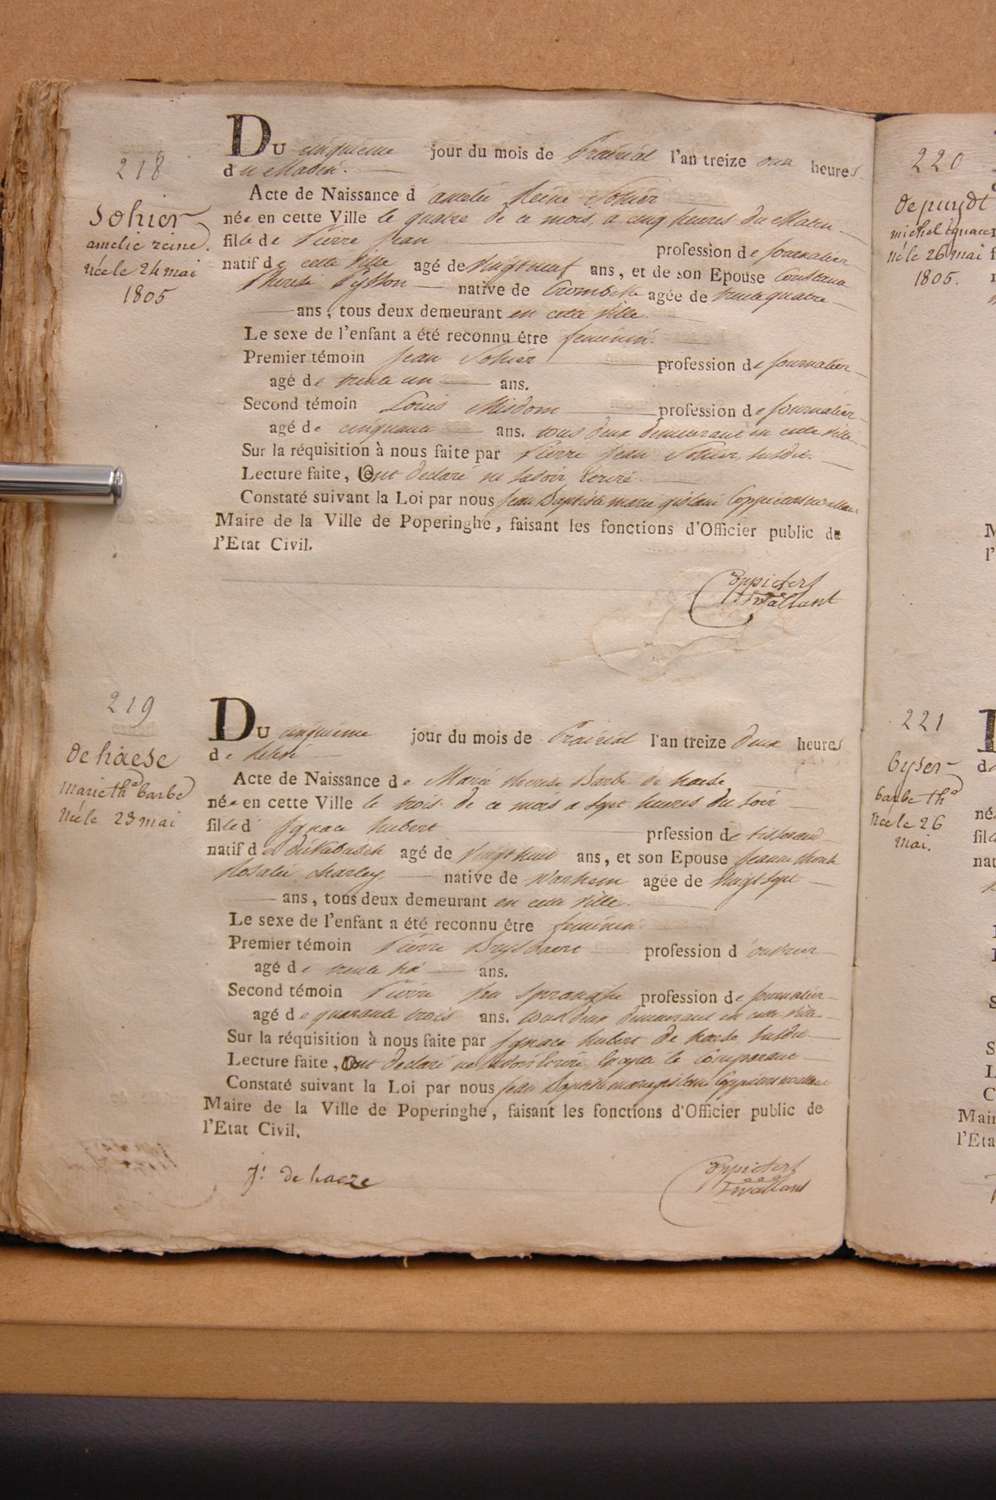 218
Sohier
amelie reine.
née le 24 mai
1805
DU cinquieme jour du mois de Prairial l'an treize onze heures
du Matin.
Acte de Naissance d'amelie Reine Sohier
née en cette Ville le quatre de ce mois, a cinq heures du Matin
fille de Pierre Jean profession de journalier
natif de cette Ville agé de Vingt neuf ans, et de son Epouse Constance
Therese native de Crombeke agée de trente quatre
ans, tous deux demeurant en cette ville.
Le sexe de l'enfant a été reconnu être feminin.
Premier témoin Jean Sohier profession de journalier
agé de trente un ans.
Second témoin Louis Misdom profession de journalier
agé de cinquante ans. tous deux demeurant en cette ville
Sur la réquisition à nous faite par Pierre Jean Sohier susdit.
Lecture faite, ont declaré ne savoir écrire.
Constaté suivant la Loi par nous Jean Baptiste marie
Maire de la Ville de Poperinghe, faisant les fonctions d'Officier public de
l'Etat Civil.
219
de haese
marie th^e barbe
née le 23 mai
DU cinquieme jour du mois de Prairial l'an treize deux heures
de relevé
Acte de Naissance de Marie therese Barbe de haese
née en cette Ville le trois de ce mois a sept heures du soir
fille d'Ignace hubert prfession de tisserand
natif de agé de Vingt huit ans, et son Epouse Jeanne
Rosalie native de agée de Vingt sept
ans, tous deux demeurant en cette ville.
Le sexe de l'enfant a été reconnu être feminin
Premier témoin Pierre profession d'ouvrier
agé de trente six ans.
Second témoin Pierre profession de journalier
agé de quarante trois ans. tous deux demeurant en cette ville
Sur la réquisition à nous faite par Ignace hubert de haese susdit
Lecture faite, ont declaré ne savoir écrire, excepté le comparant
Constaté suivant la Loi par nous Jean Baptiste marie
Maire de la Ville de Poperinghe, faisant les fonctions d'Officier public de
l'Etat Civil.
J: de haeze
220
depuydt
michel Ignace
né le 26 mai
1805.
221
Gyser
barbe th^e
née le 26
mai.